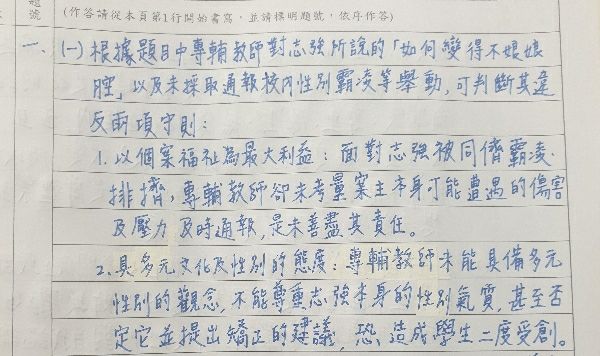 題號
(作答請從本頁第1行開始書寫，並請標明題號，依序作答)
一、(一) 根據題目中專輔教師對志強所說的「如何變得不娘娘
腔」以及未採取通報校內性別霸凌等舉動，可判斷其違
反兩項守則：
1. 以個案福祉為最大利益：面對志強被同儕霸凌、
排擠，專輔教師卻未考量案主本身可能遭遇的傷害
及壓力及時通報，是未善盡其責任。
2. 具多元文化及性別的態度：專輔教師未能具備多元
性別的觀念，不能尊重志強本身的性別氣質，甚至否
定它並提出矯正的建議，恐造成學生二度受創。